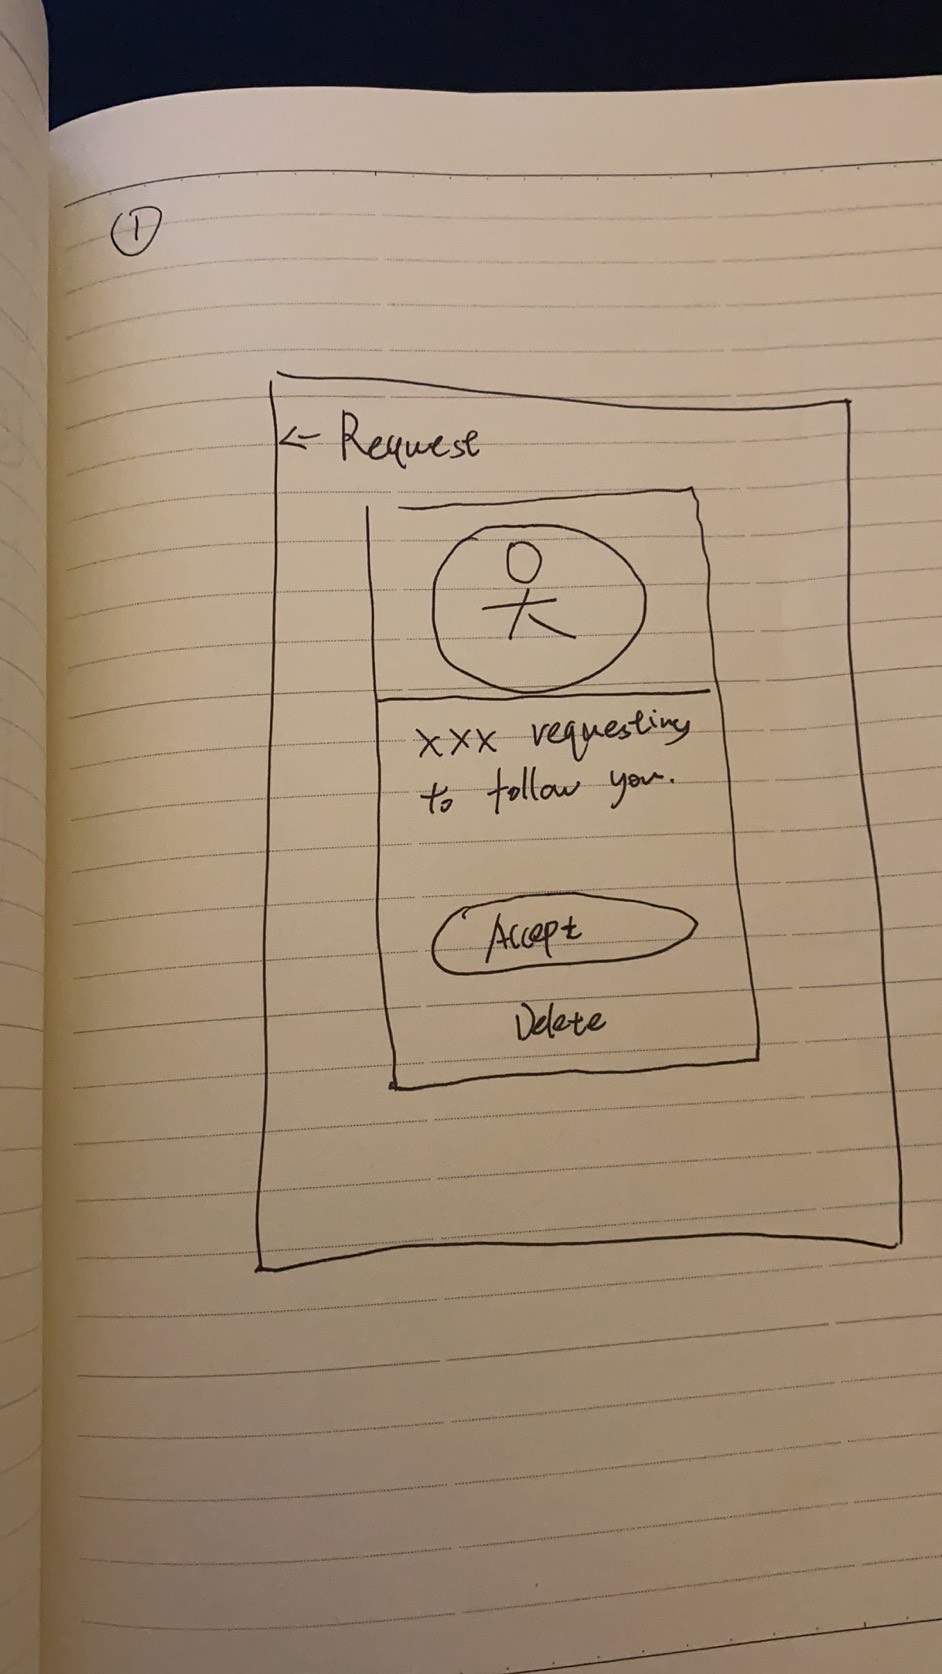 ①
← Request
XXX requesting
to follow you.
Accept
Delete